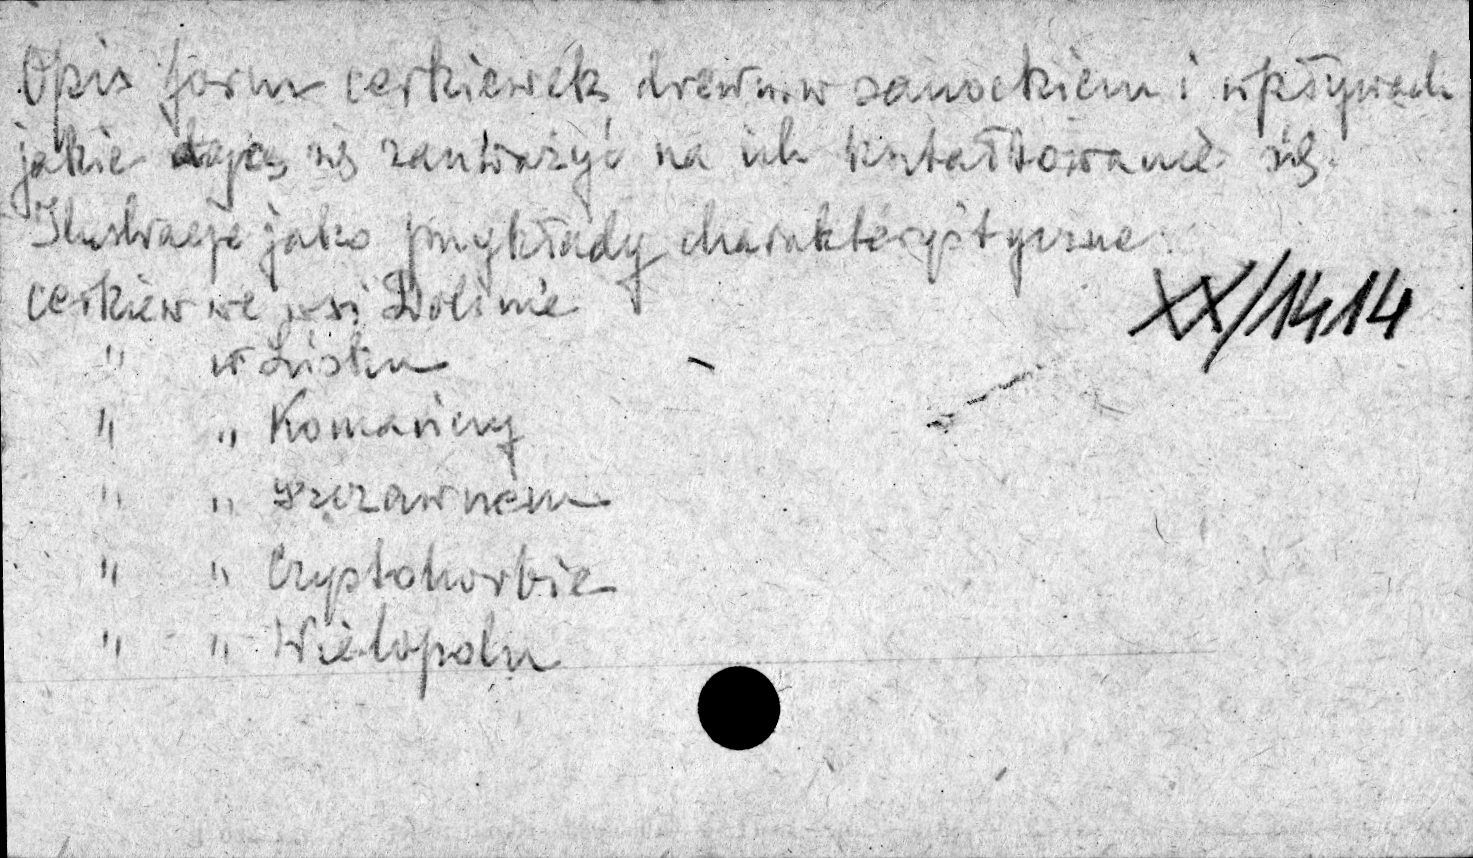 Opis form cerkiewek drewn. w sanockiem i wpływach
jakie dają się zauważyć na ich kształtowanie się.
Ilustracje jako przykłady charakterystyczne:
cerkiew we wsi Dolinie
" w Lisku
" " Komańczy
" " Szczawnem
" " Czystohorbie
" " Wielopolu
XX/1414